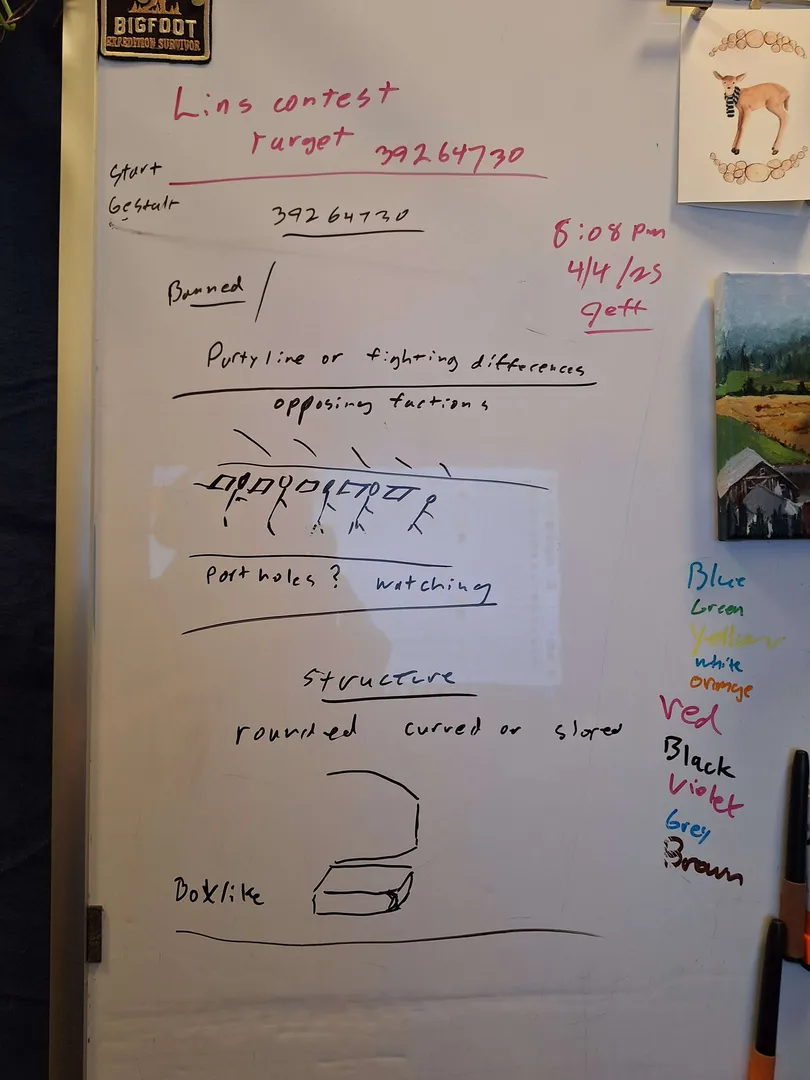 BIGFOOT
EXPEDITION SURVIVOR
Lins contest
Target 39264730
Start
Gestalt
39264730
8:08 Pm
4/4/25
Jeff
Banned /
Party line or fighting differences
opposing factions
Port holes? watching
Structure
rounded curved or sloped
Boxlike
Blue
Green
Yellow
white
orange
red
Black
Violet
Grey
Brown